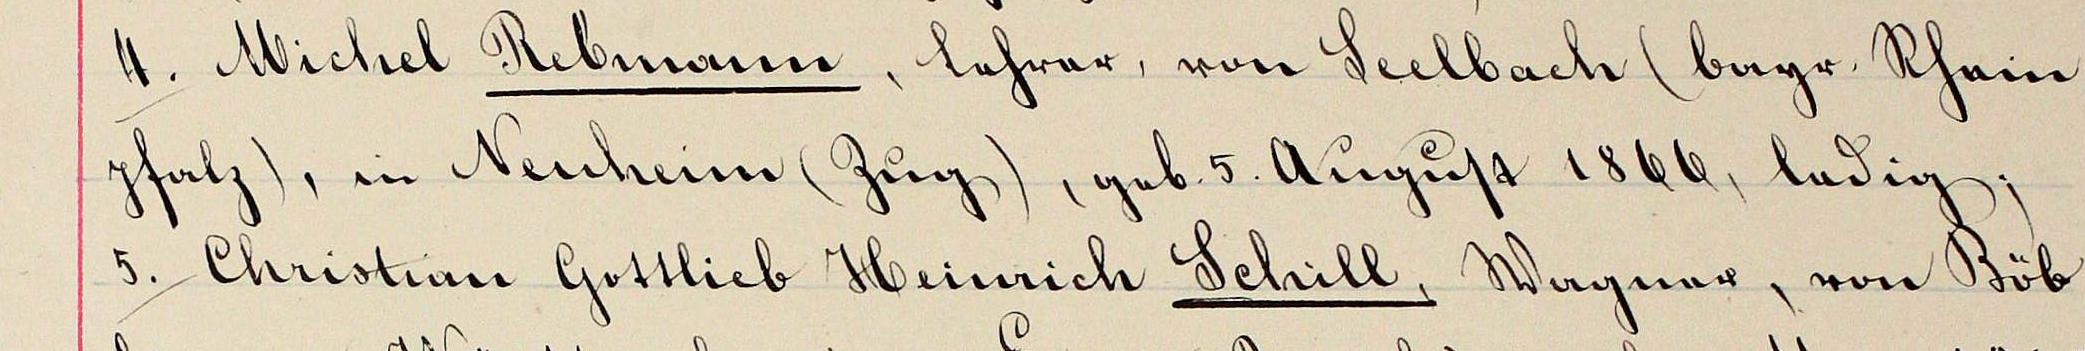 4. Michel Rebmann, Lehrer, von Seelbach (bayr. Rhein
pfalz), in Neuheim (Zug), geb. 5. August 1866, ledig;
5. Christian Gottlieb Heinrich Schill, Wagner, von Böb